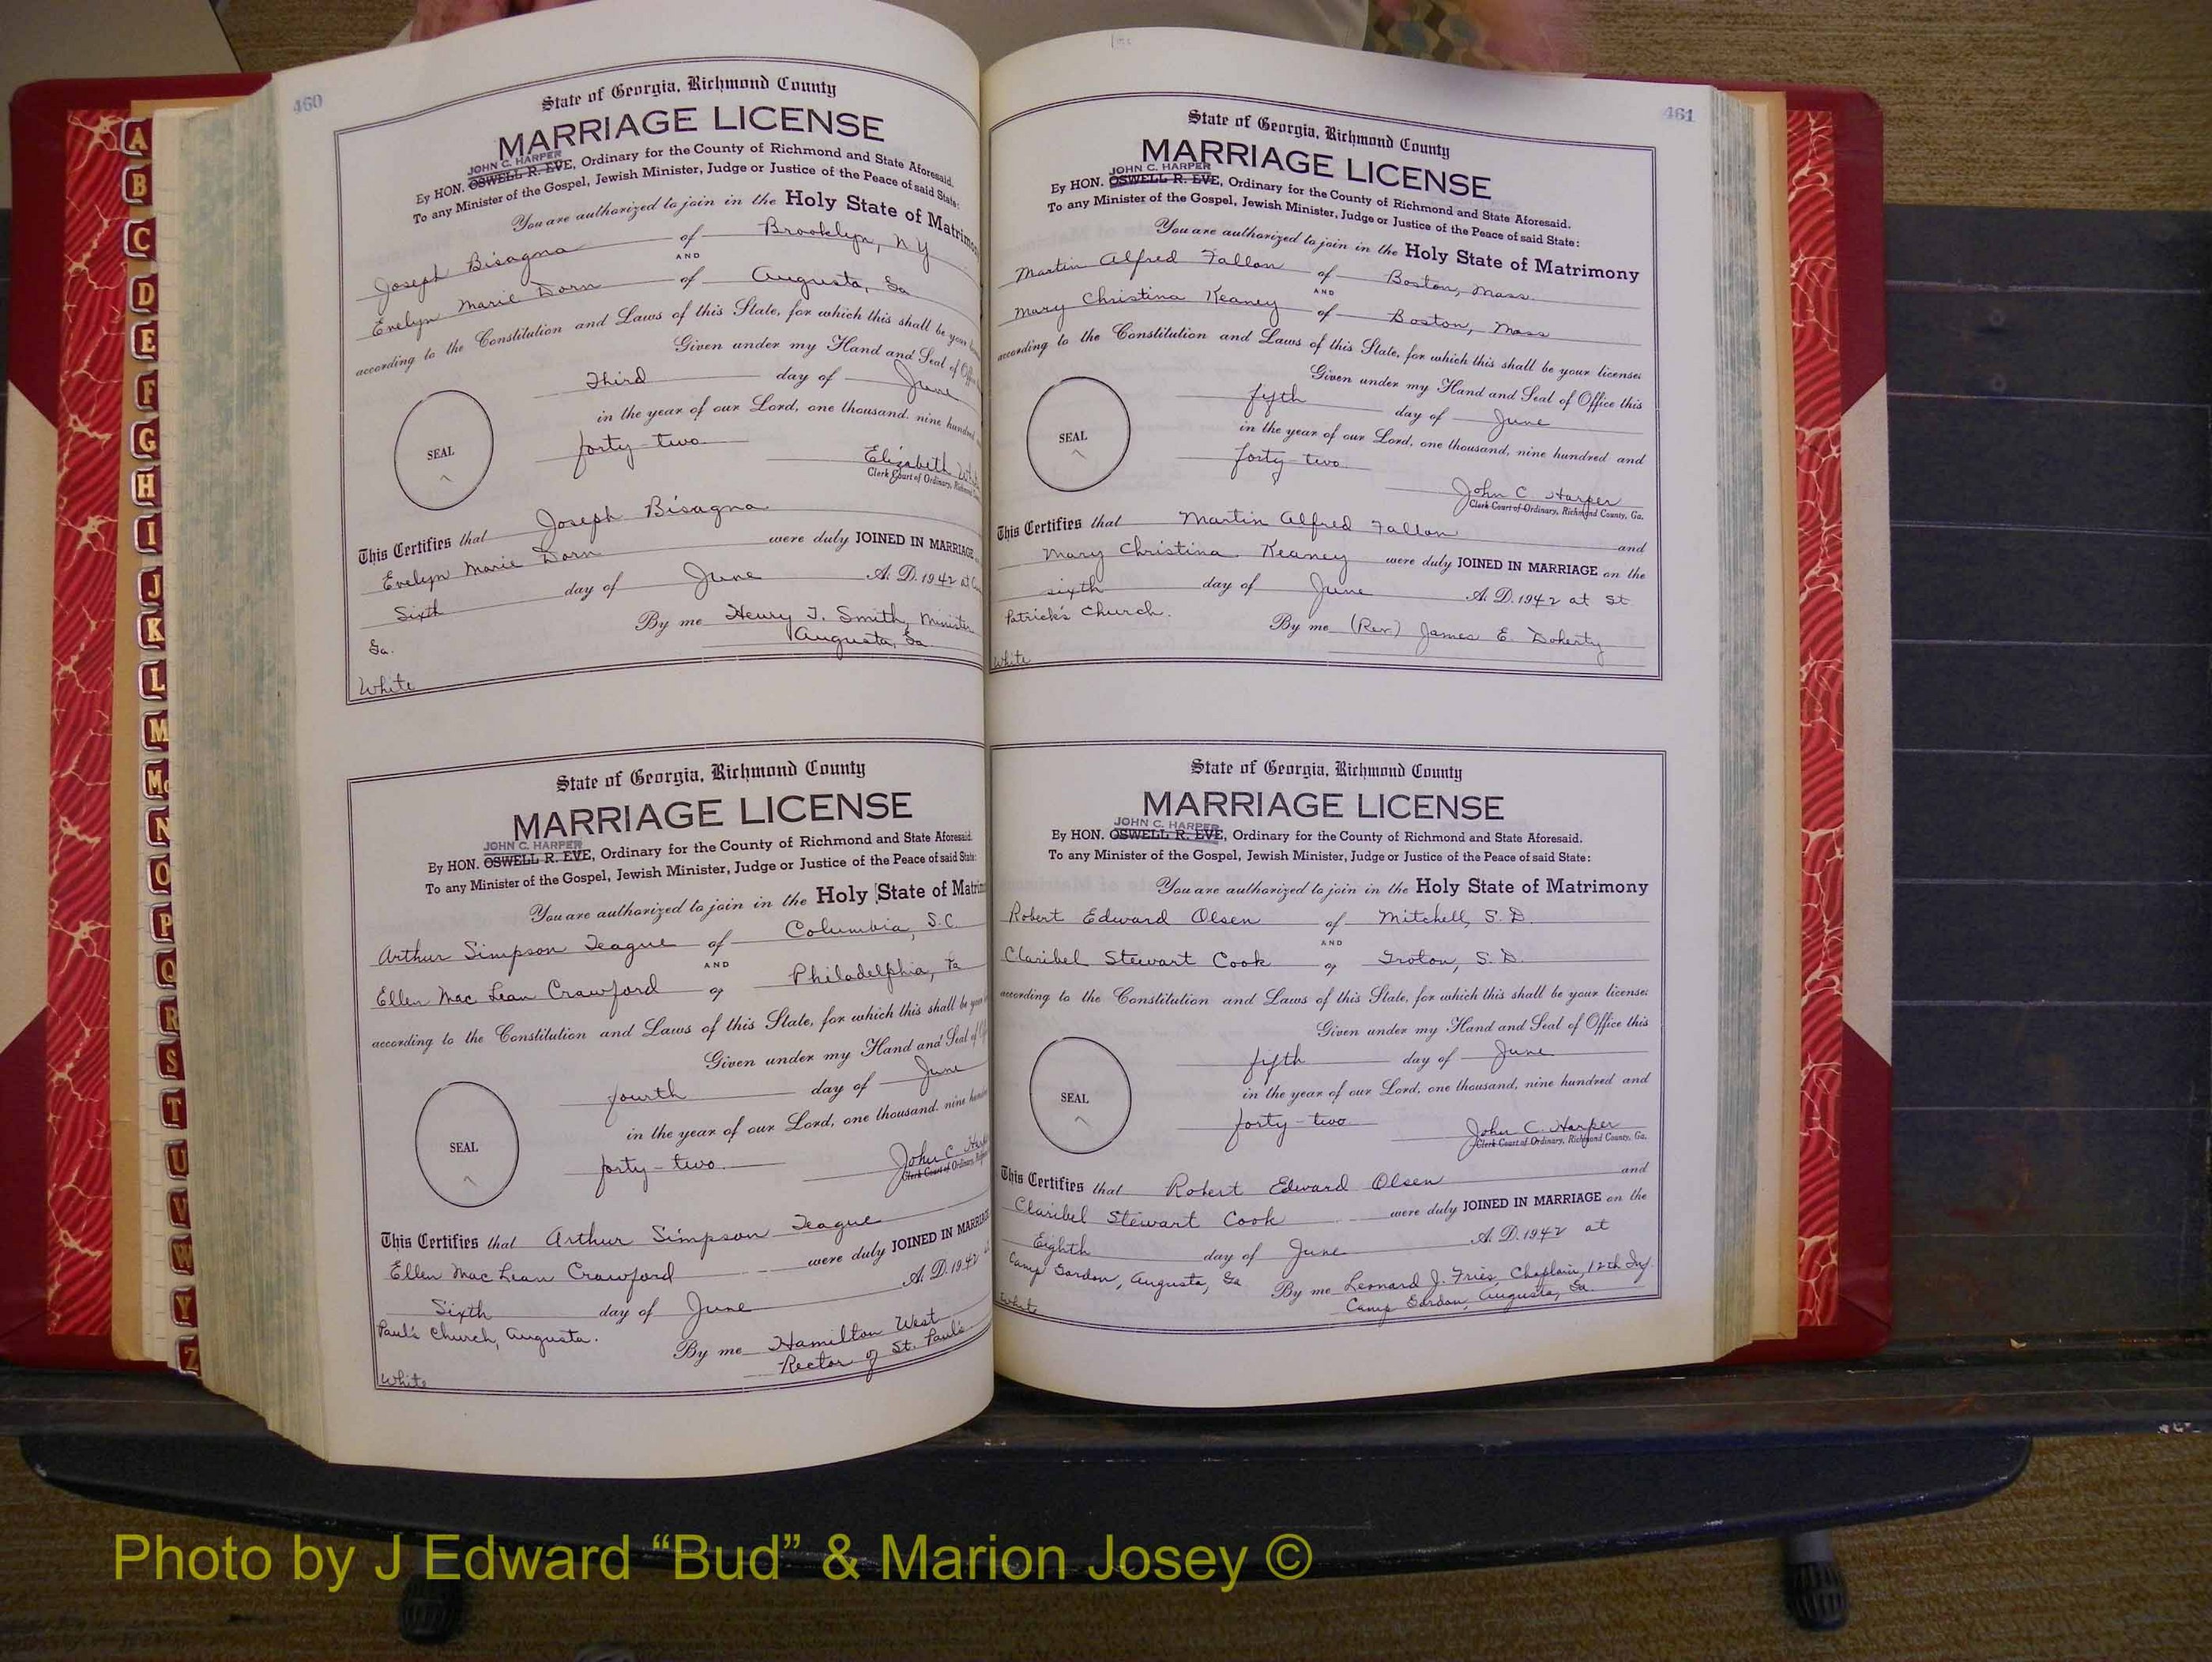 460
State of Georgia, Richmond County
MARRIAGE LICENSE
JOHN C. HARPER
By HON. OSWELL R. EVE, Ordinary for the County of Richmond and State Aforesaid.
To any Minister of the Gospel, Jewish Minister, Judge or Justice of the Peace of said State:
You are authorized to join in the Holy State of Matrimo
Joseph Bisagna of Brooklyn, NY
AND
Evelyn Marie Dorn of Augusta, Ga
according to the Constitution and Laws of this State, for which this shall be your
Given under my Hand and Seal of
Third day of June
in the year of our Lord, one thousand, nine hundred
forty-two
SEAL
Elizabeth
Clerk Court of Ordinary, Richmond
This Certifies that Joseph Bisagna
Evelyn Marie Dorn were duly JOINED IN MARRIAGE
Sixth day of June A. D. 1942 at
Ga. By me Henry J. Smith, Minister
Augusta, Ga
White
State of Georgia, Richmond County
MARRIAGE LICENSE
JOHN C. HARPER
By HON. OSWELL R. EVE, Ordinary for the County of Richmond and State Aforesaid.
To any Minister of the Gospel, Jewish Minister, Judge or Justice of the Peace of said State:
You are authorized to join in the Holy State of Matrim
Arthur Simpson Teague of Columbia, S.C.
AND
Ellen Mac Lean Crawford of Philadelphia, Pa
according to the Constitution and Laws of this State, for which this shall be your
Given under my Hand and Seal of
fourth day of June
in the year of our Lord, one thousand, nine
forty-two
SEAL
John C.
Clerk Court of Ordinary,
This Certifies that Arthur Simpson Teague
Ellen Mac Lean Crawford were duly JOINED IN MARRIAGE
Sixth day of June A. D. 1942
Paul's Church, Augusta. By me Hamilton West
Rector of St. Paul's
White
461
State of Georgia, Richmond County
MARRIAGE LICENSE
JOHN C. HARPER
By HON. OSWELL R. EVE, Ordinary for the County of Richmond and State Aforesaid.
To any Minister of the Gospel, Jewish Minister, Judge or Justice of the Peace of said State:
You are authorized to join in the Holy State of Matrimony
Martin Alfred Fallon of Boston, Mass.
AND
Mary Christina Keaney of Boston, Mass
according to the Constitution and Laws of this State, for which this shall be your license:
Given under my Hand and Seal of Office this
fifth day of June
in the year of our Lord, one thousand, nine hundred and
forty-two
SEAL
John C. Harper
Clerk Court of Ordinary, Richmond County, Ga.
This Certifies that Martin Alfred Fallon and
Mary Christina Keaney were duly JOINED IN MARRIAGE on the
sixth day of June A. D. 1942 at St
Patrick's Church. By me (Rev.) James E. Doherty
White
State of Georgia, Richmond County
MARRIAGE LICENSE
JOHN C. HARPER
By HON. OSWELL R. EVE, Ordinary for the County of Richmond and State Aforesaid.
To any Minister of the Gospel, Jewish Minister, Judge or Justice of the Peace of said State:
You are authorized to join in the Holy State of Matrimony
Robert Edward Olsen of Mitchell, S. D.
AND
Claribel Stewart Cook of Groton, S. D.
according to the Constitution and Laws of this State, for which this shall be your license:
Given under my Hand and Seal of Office this
fifth day of June
in the year of our Lord, one thousand, nine hundred and
forty-two
SEAL
John C. Harper
Clerk Court of Ordinary, Richmond County, Ga.
This Certifies that Robert Edward Olsen and
Claribel Stewart Cook were duly JOINED IN MARRIAGE on the
Eighth day of June A. D. 1942 at
Camp Gordon, Augusta, Ga By me Leonard J. Fries, Chaplain, 12th Inf.
Camp Gordon, Augusta, Ga.
White
A
B
C
D
E
F
G
H
I
J
K
L
M
Mc
N
O
P
Q
R
S
T
U
V
W
Y
Z
Photo by J Edward “Bud” & Marion Josey ©